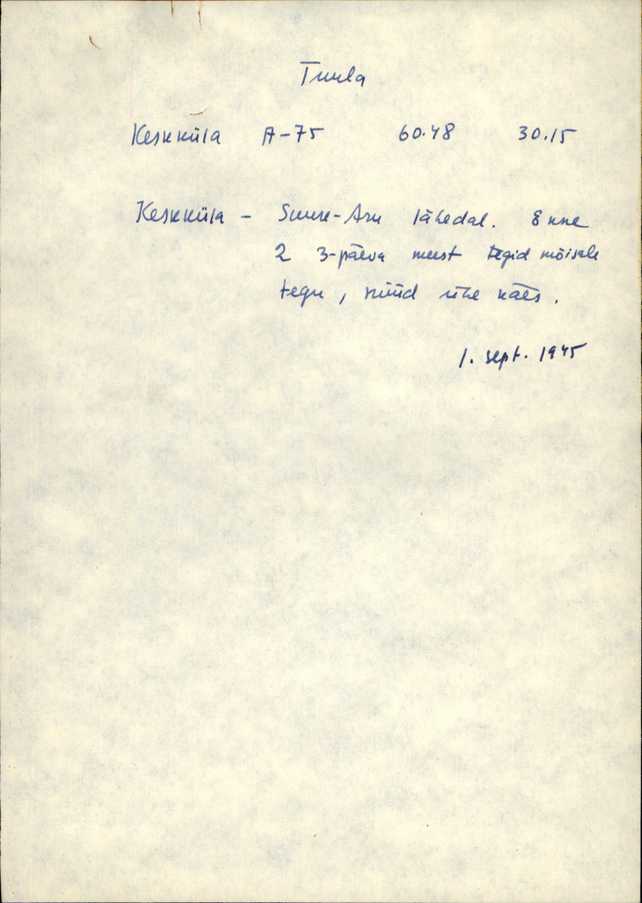 Tuula
Keskküla A-75 60.48 30.15
Keskküla - Suure-Aru lähedal. Enne
2 3-päeva meest tegid mõisale
tegu, nüüd ühe käes.
1. sept. 1945